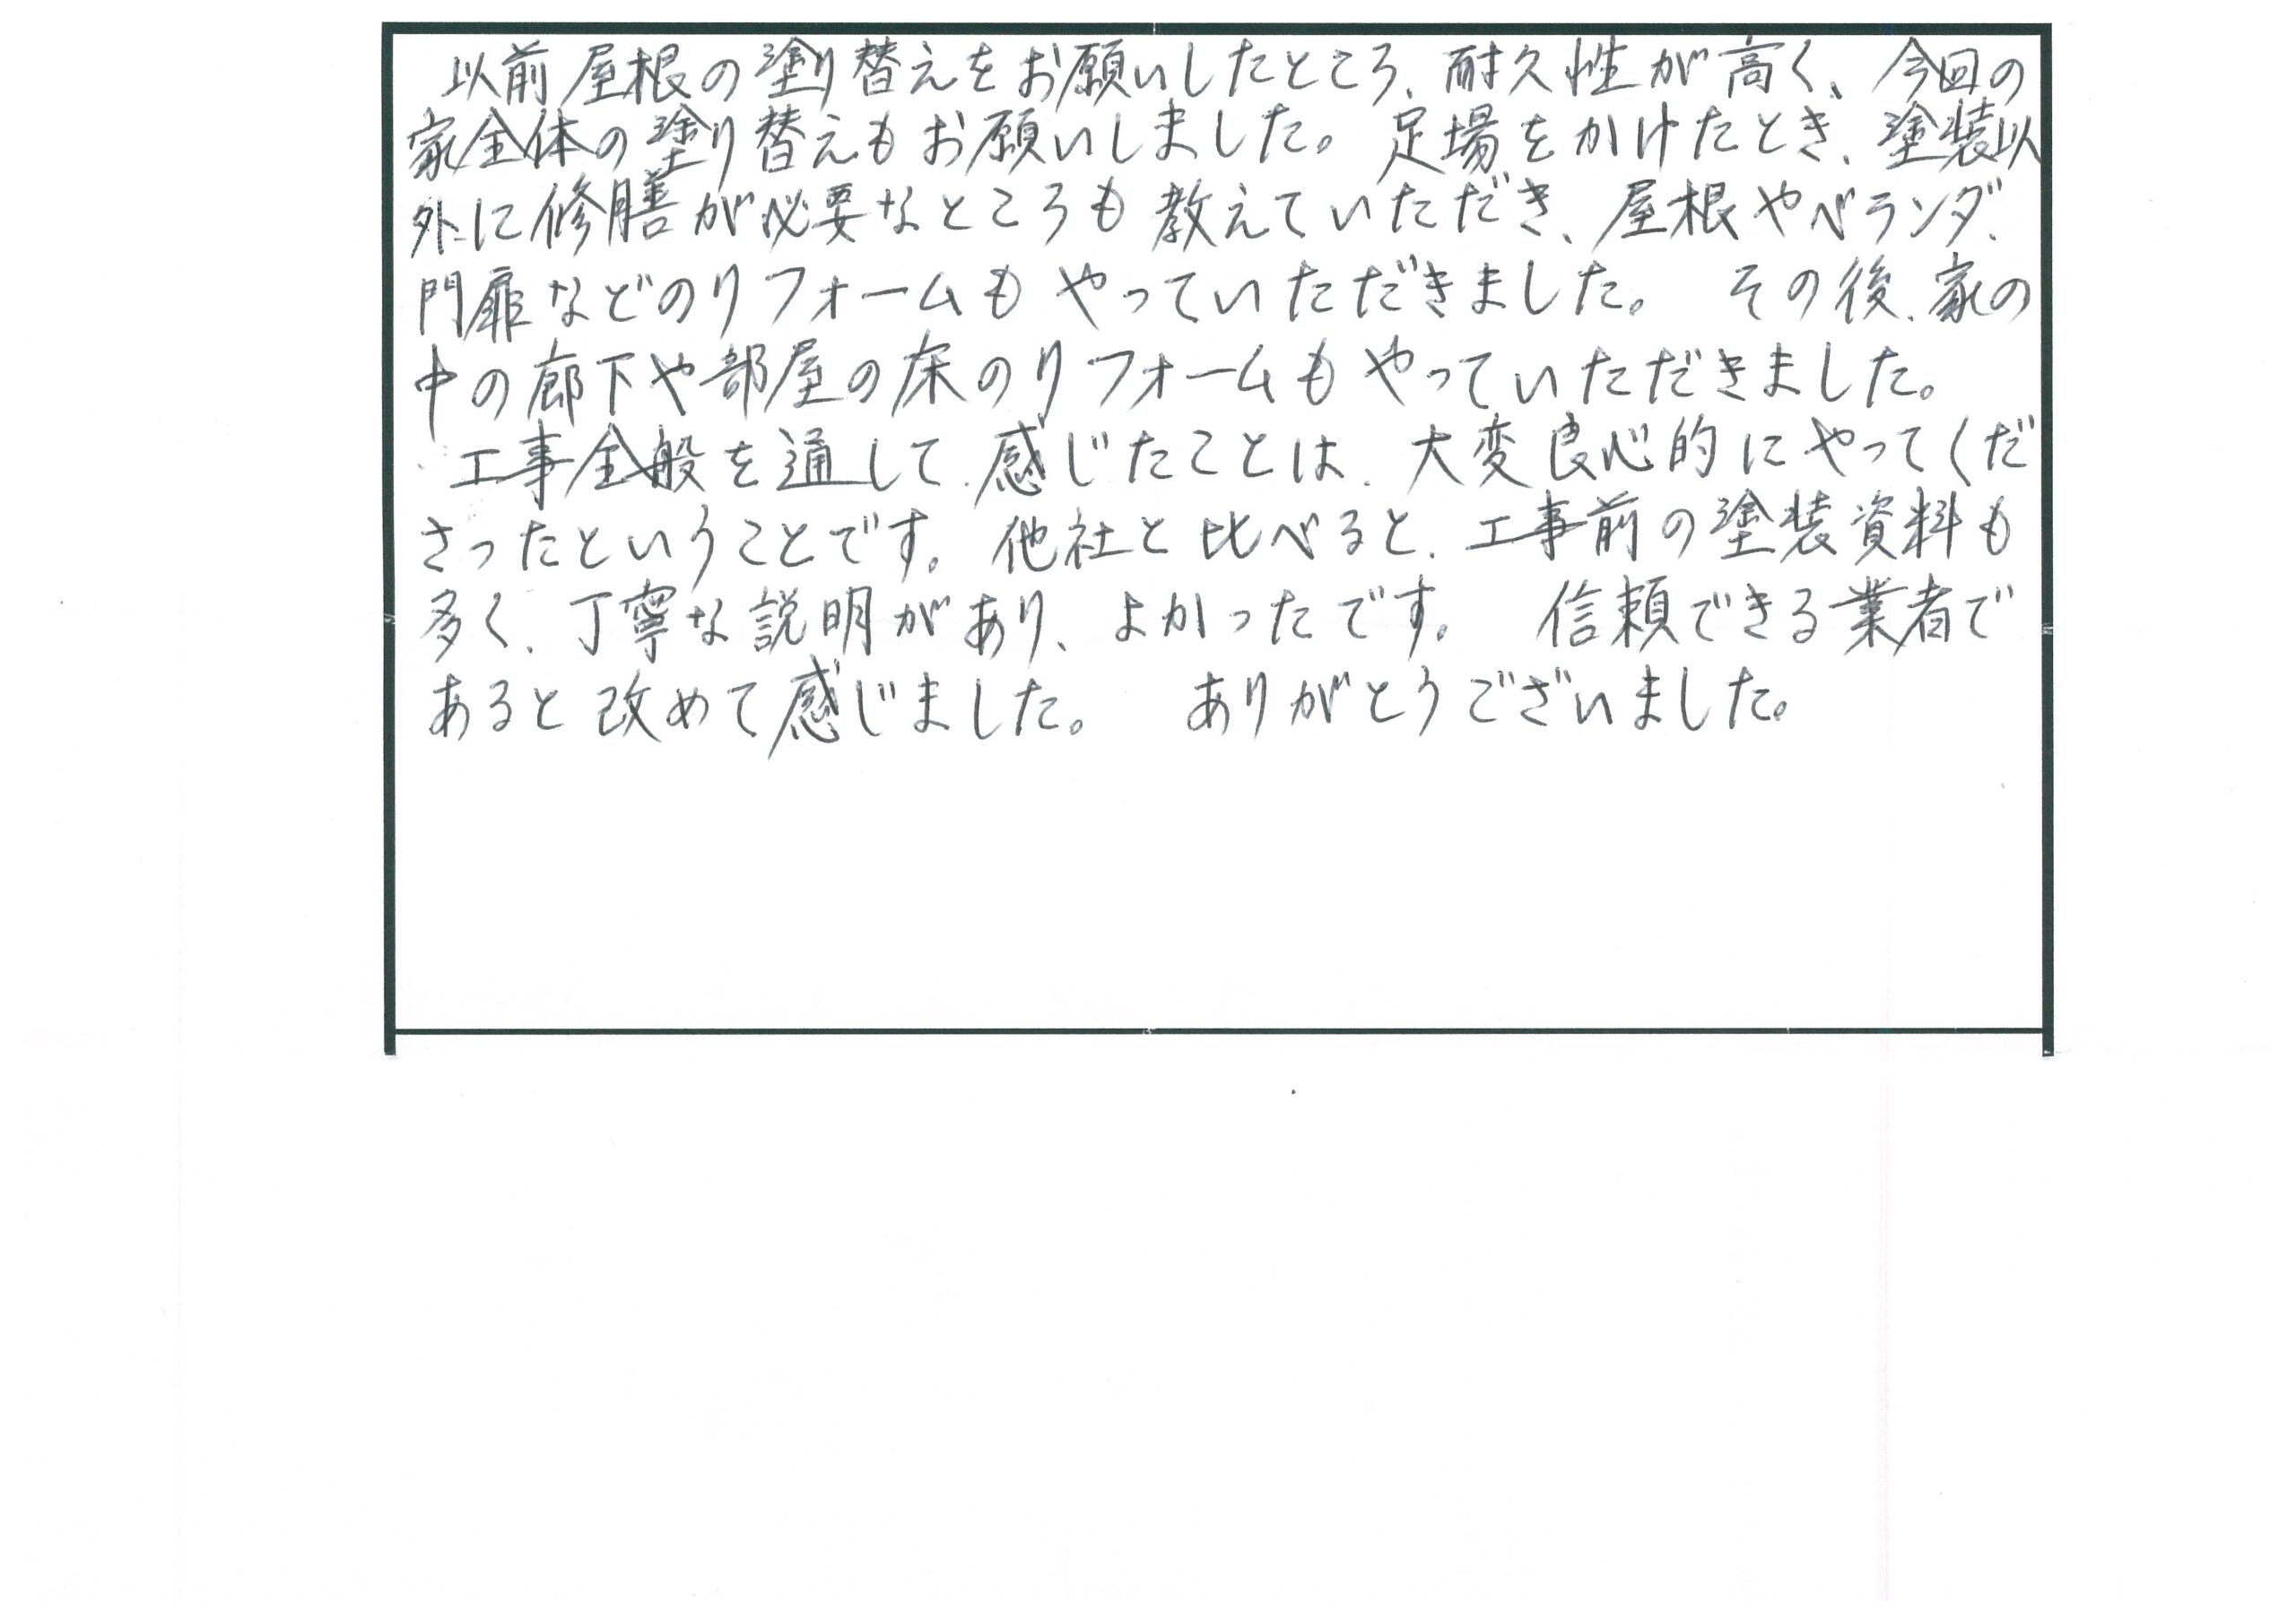 以前屋根の塗り替えをお願いしたところ、耐久性が高く、今回の
家全体の塗り替えもお願いしました。足場をかけたとき、塗装以
外に修膳が必要なところも教えていただき、屋根やベランダ、
門扉などのリフォームもやっていただきました。 その後、家の
中の廊下や部屋の床のリフォームもやっていただきました。
工事全般を通して、感じたことは、大変良心的にやってくだ
さったということです。他社と比べると、工事前の塗装資料も
多く、丁寧な説明があり、よかったです。 信頼できる業者で
あると改めて感じました。 ありがとうございました。